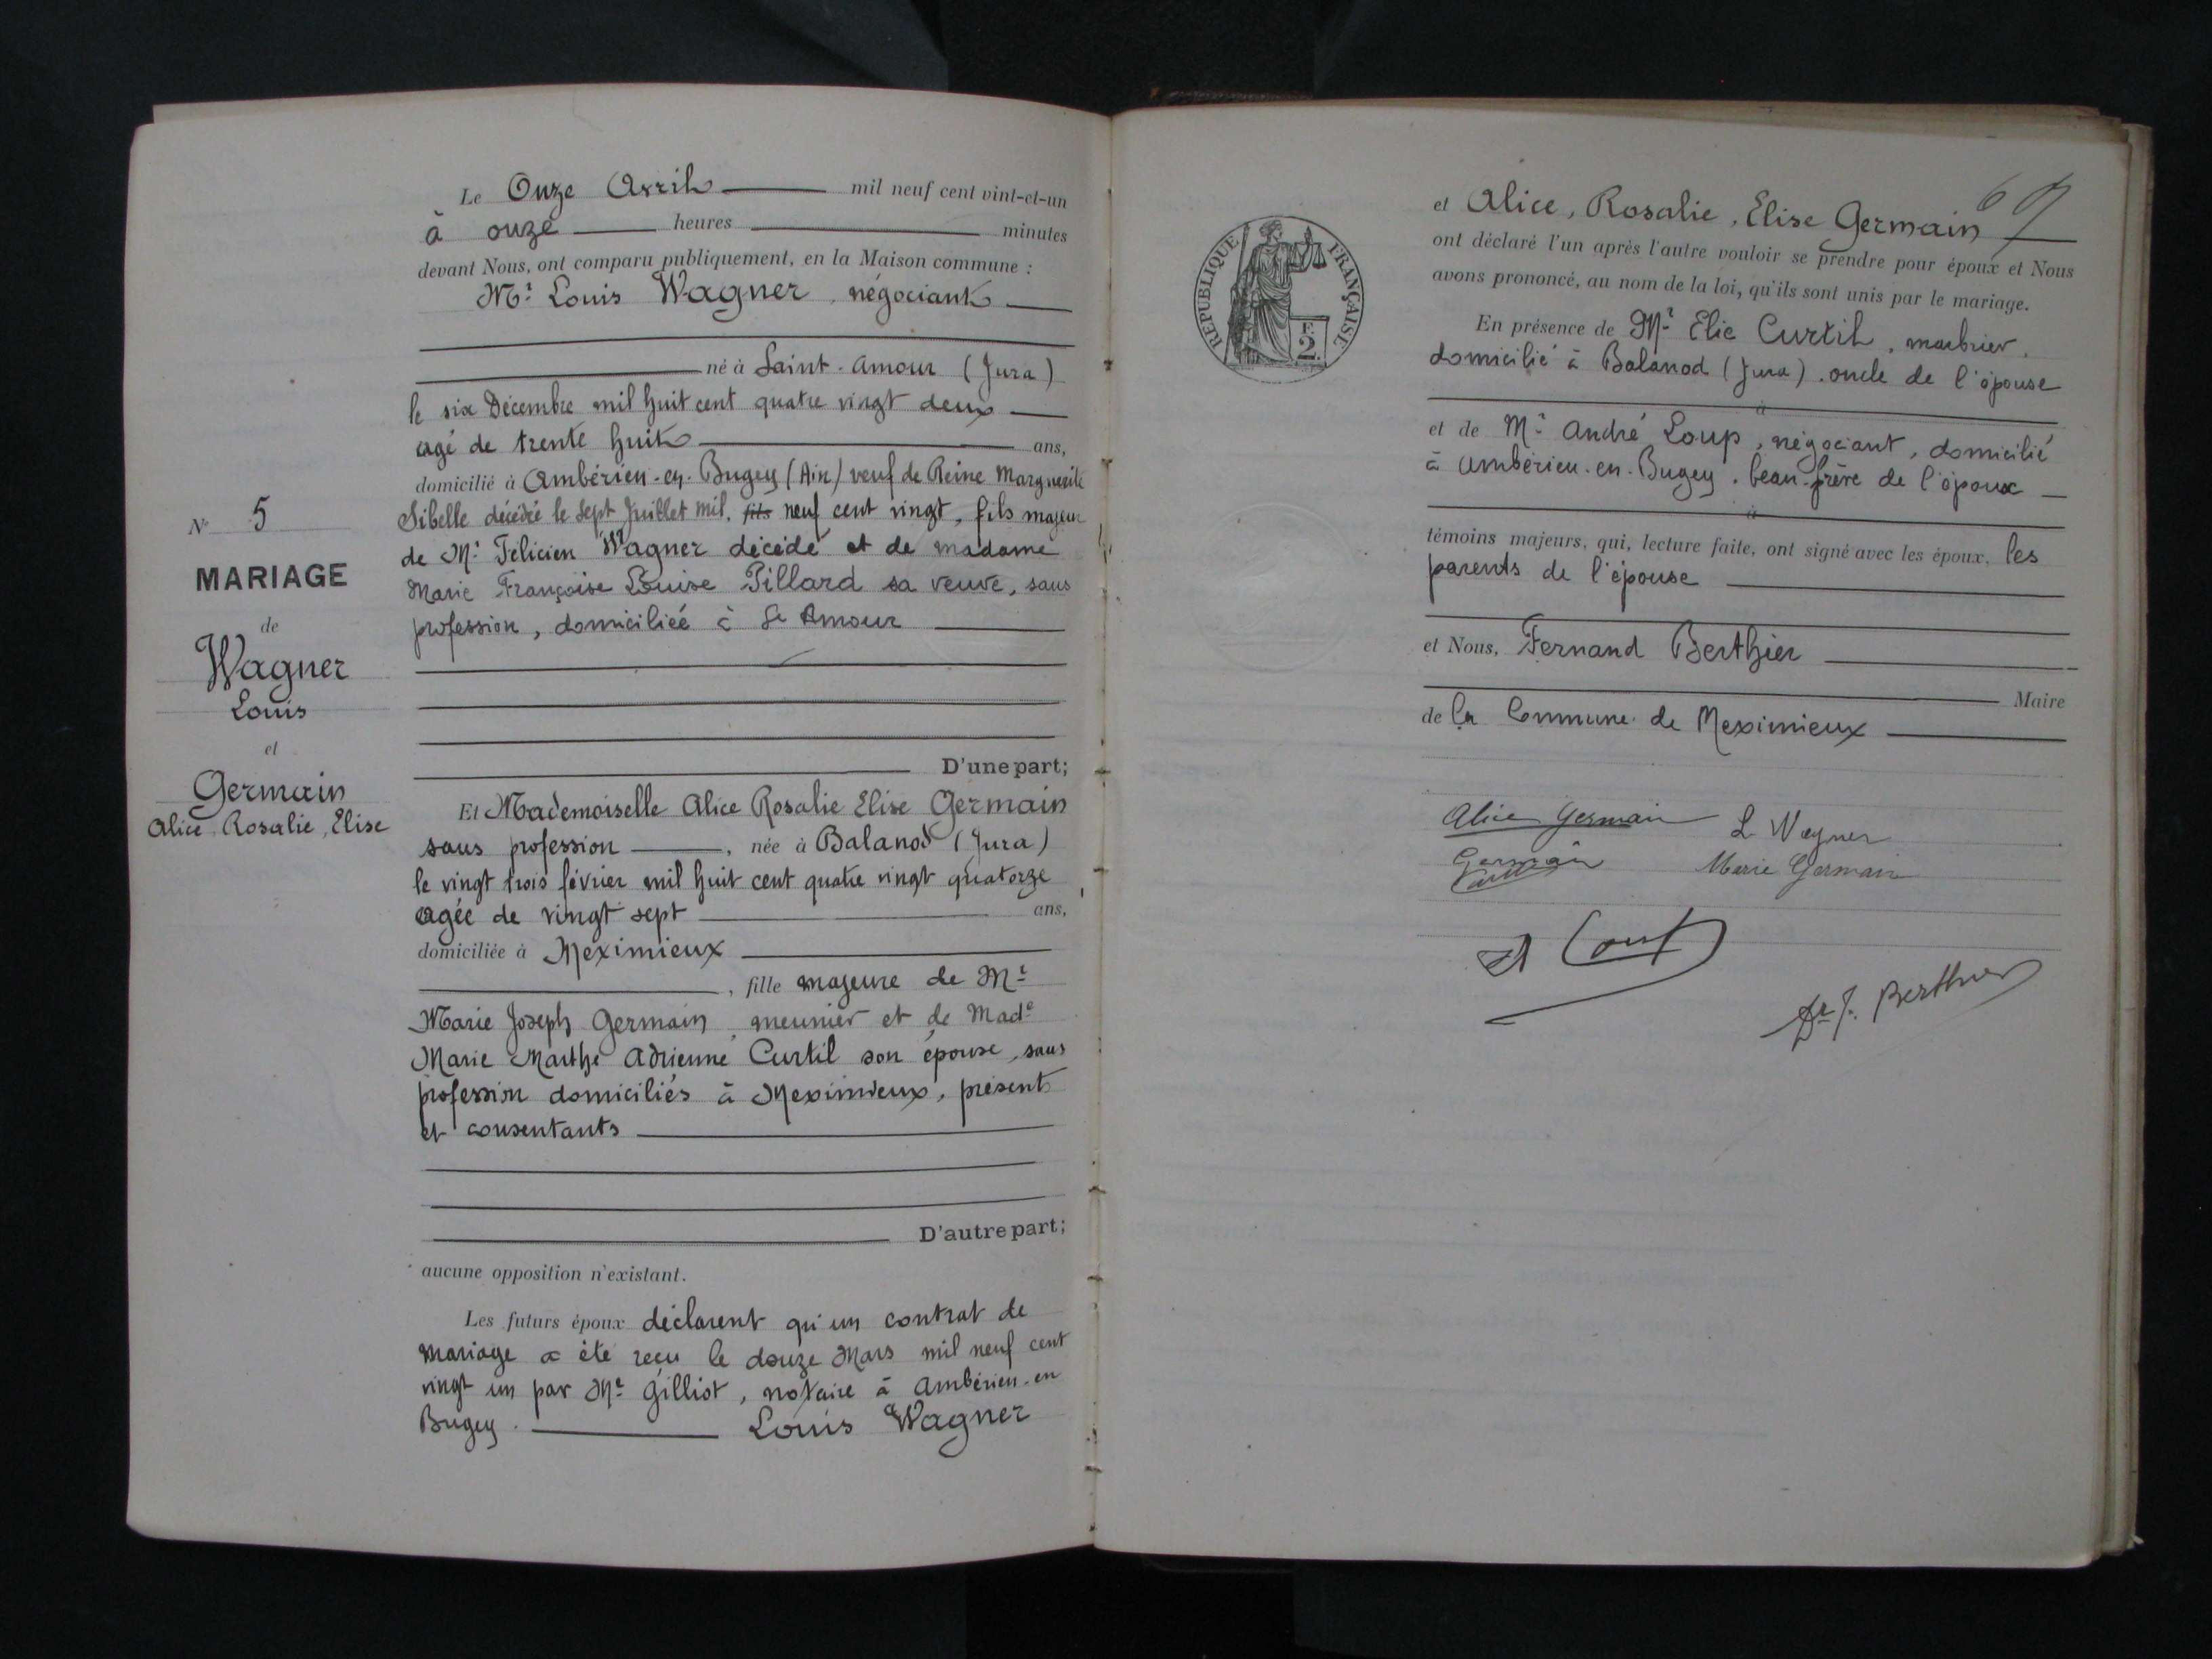 N° 5
MARIAGE
de
Wagner
Louis
et
Germain
Alice Rosalie, Elise
Le Onze Avril mil neuf cent vint-et-un
à onze heures minutes
devant Nous, ont comparu publiquement, en la Maison commune :
Mr Louis Wagner, négociant
né à Saint-Amour (Jura)
le six Décembre mil huit cent quatre vingt deux
agé de trente huit ans,
domicilié à Ambérieu-en-Bugey (Ain) veuf de Reine Marguerite
Sibelle décédée le sept Juillet mil, fils neuf cent vingt, fils majeur
de Mr Félicien Wagner décédé et de madame
Marie Françoise Louise Pillard sa veuve, sans
profession, domiciliée à St Amour
D'une part;
Et Mademoiselle Alice Rosalie Elise Germain
sans profession, née à Balanod (Jura)
le vingt trois février mil huit cent quatre vingt quatorze
agée de vingt sept ans,
domiciliée à Meximieux
, fille majeure de Mr
Marie Joseph Germain meunier et de Made
Marie Marthe Adrienne Curtil son épouse, sans
profession domiciliés à Meximieux, présents
et consentants
D'autre part;
aucune opposition n'existant.
Les futurs époux déclarent qu'un contrat de
mariage a été reçu le douze Mars mil neuf cent
vingt un par Me Gilliot, notaire à Ambérieu-en
Bugey. Louis Wagner
69
RÉPUBLIQUE FRANÇAISE
F.
2.
et Alice, Rosalie, Elise Germain
ont déclaré l'un après l'autre vouloir se prendre pour époux et Nous
avons prononcé, au nom de la loi, qu'ils sont unis par le mariage.
En présence de Mr Elie Curtil, marbrier,
domicilié à Balanod (Jura). oncle de l'épouse
à
et de Mr André Loup, négociant, domicilié
à Ambérieu-en-Bugey. beau-frère de l'époux
à
témoins majeurs, qui, lecture faite, ont signé avec les époux, les
parents de l'épouse
et Nous, Fernand Berthier
Maire
de la Commune de Meximieux
Alice Germain L Wagner
Germain Marie Germain
A Loup
Dr F. Berthier